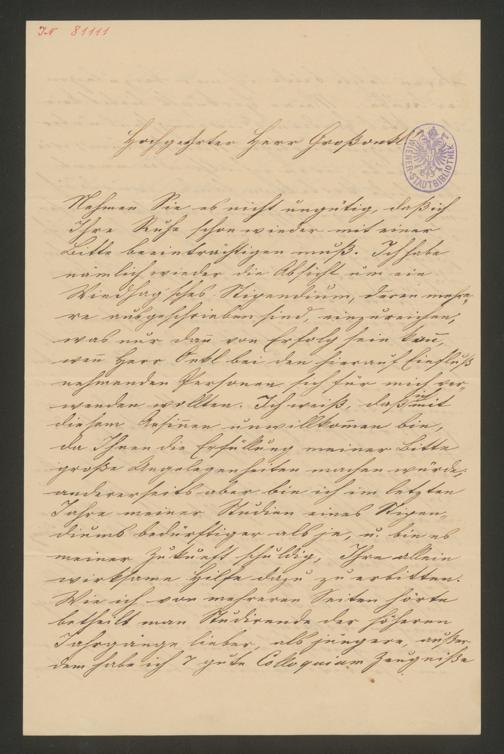 IN 81111
Hochgeehrter Herr Großonkel!
WIENER STADTBIBLIOTHEK
Nehmen Sie es nicht ungütig, daß ich
Ihre Ruhe schon wieder mit einer
Bitte beeinträchtigen muß. Ich habe
nämlich wieder die Absicht um ein
Windhag'sches Stipendium, deren mehre-
re ausgeschrieben sind, einzureichen,
was nur dan von Erfolg sein kan̄,
wen̄ Herr Onkl bei den hierauf Einfluß
nehmenden Personen sich für mich ver-
wenden wollten. Ich weiß, daß ich mit
diesem Ansinen unwillkomen bin,
da Ihnen die Erfüllung meiner Bitte
große Ungelegenheiten machen würde;
andererseits aber bin ich im letzten
Jahre meiner Studien eines Stipen-
diums bedürftiger als je, u. bin es
meiner Zukunft schuldig, Ihre allein
wirksame Hilfe dazu zu erbitten.
Wie ich von mehreren Seiten hörte
betheilt man Studirende der höheren
Jahrgänge lieber, als jüngere, außer-
dem habe ich 7 gute Colloquium Zeugniße